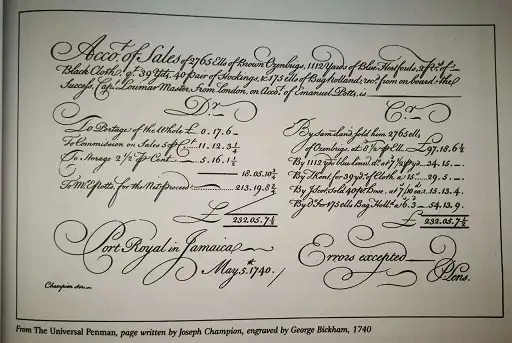 Acco.t of Sales of 2765 Ells of Brown Oznbrigs, 1112 Yards of Blue Hertfords, 2 p.s of
Black Cloth, q.t 39 Y.ds, 40 pair of Stockings, & 175 ells of Bag Holland, rec.d from on board the
Success, Cap.t Lowmar Master, From London, on Acco.t of Emanuel Potts, is
D.r
To Portage of the Whole £ 0.17.6
To Commission on Sales 5 p C.t 11.12.3¼
To Storage 2½ p Cent 5.16.1½
18.05.10¾
To M.r Potts, for the Nett proceed 213.19.8¾
£ 232.05.7½
C.r
By Sam. Land sold him 2765 ells
of Oznbrigs, at 8½ p Ell £97.18.6½
By 1112 y.ds blue lined, d.o at 7½ p y.d 34.15.
By J. Kent for 39 y.ds of Cloth a 15/ 29.5.
By J. Fox, sold 40 p.r Hose, at 7/10 ea. 15.13.4.
By D.o for 175 ells Bag Holl.d a 6.3 54.13.9.
£ 232.05.7½
Port Royal in Jamaica
May 5.th 1740.
Errors excepted
P Pens.
Champion scr.
From The Universal Penman, page written by Joseph Champion, engraved by George Bickham, 1740